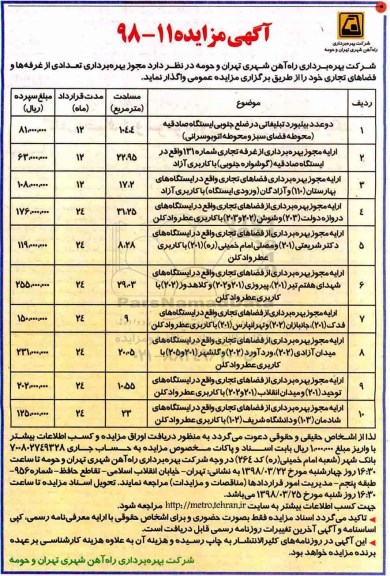 شرکت بهره‌برداری
راه‌آهن شهری تهران و حومه
آگهی مزایده ۱۱-۹۸
شرکت بهره‌بـرداری راه‌آهن شهری تهران و حومه در نظر دارد مجوز بهره‌برداری تعدادی از غرفه‌ها و
فضاهای تجاری خود را از طریق برگزاری مزایده عمومی واگذار نماید.
ردیف موضوع مساحت (مترمربع) مدت قرارداد (ماه) مبلغ سپرده (ریال)
۱ دو عدد بیلبورد تبلیغاتی در ضلع جنوبی ایستگاه صادقیه (محوطه فضای سبز و محوطه اتوبوسرانی) ۱۰۴.۴ ۱۲ ۸۱,۰۰۰,۰۰۰
۲ ارایه مجوز بهره‌برداری از غرفه تجاری شماره ۱۳۱ واقع در ایستگاه صادقیه (گوشواره جنوبی) با کاربری آزاد ۲۲.۹۵ ۱۲ ۶۳,۰۰۰,۰۰۰
۳ ارایه مجوز بهره‌برداری از فضاهای تجاری واقع در ایستگاه‌های بهارستان (۱۱۰) و آزادگان (ورودی ایستگاه) با کاربری آزاد ۱۷.۲ ۱۲ ۱۰۸,۰۰۰,۰۰۰
۴ ارایه مجوز بهره‌برداری از فضاهای تجاری واقع در ایستگاه‌های دروازه دولت (۲۰۳) و شوش (۲۰۲ و ۲۰۳) با کاربری عطر و ادکلن ۳۱.۲۵ ۲۴ ۱۷۶,۰۰۰,۰۰۰
۵ ارایه مجوز بهره‌برداری از فضاهای تجاری واقع در ایستگاه‌های دکتر شریعتی (۲۰۱) و مصلی امام خمینی (ره) (۲۰۱) با کاربری عطر و ادکلن ۸.۲۸ ۲۴ ۱۱۹,۰۰۰,۰۰۰
۶ ارایه مجوز بهره‌برداری از فضاهای تجاری واقع در ایستگاه‌های شهدای هفتم تیر (۲۰۱)، پیروزی (۲۰۱ و ۲۰۲) و کلاهدوز (۲۰۲) با کاربری عطر و ادکلن ۲۹.۰۳ ۲۴ ۲۵۵,۰۰۰,۰۰۰
۷ ارایه مجوز بهره‌برداری از فضاهای تجاری واقع در ایستگاه‌های فدک (۲۰۱)، جانبازان (۲۰۲) و تهرانپارس (۲۰۱) با کاربری عطر و ادکلن ۹ ۲۴ ۱۵۰,۰۰۰,۰۰۰
۸ ارایه مجوز بهره‌برداری از فضاهای تجاری واقع در ایستگاه‌های میدان آزادی (۲۰۲)، وردآورد (۲۰۲) و گلشهر (۲۰۱ و ۲۰۵) با کاربری عطر و ادکلن ۲۰.۰۵ ۲۴ ۲۳۱,۰۰۰,۰۰۰
۹ ارایه مجوز بهره‌برداری از فضاهای تجاری واقع در ایستگاه‌های توحید (۲۰۱) و میدان انقلاب (۲۰۱ و ۲۰۲) با کاربری عطر و ادکلن ۱۰.۵۵ ۲۴ ۲۰۲,۰۰۰,۰۰۰
۱۰ ارایه مجوز بهره‌برداری از فضاهای تجاری واقع در ایستگاه‌های شادمان (۱۰۳) و دانشگاه شریف (۱۰۲) با کاربری عطر و ادکلن ۲۳ ۲۴ ۱۲۵,۰۰۰,۰۰۰
لذا از اشخاص حقیقی و حقوقی دعوت می‌گردد به منظور دریافت اوراق مزایده و کسب اطلاعات بیشتر
با واریز مبلغ ۱,۰۰۰,۰۰۰ ریال بابت اسناد و پاکات مخصوص مزایده به حساب جاری ۷۰۰۸۰۲۷۴۹۳۲۸
بانک شهر (شعبه امام خمینی (ره) کد ۲۶۴) در وجه شرکت بهره‌برداری راه‌آهن شهری تهران و حومه تا ساعت
۱۶:۳۰ روز چهارشنبه مورخ ۱۳۹۸/۰۳/۲۲ به نشانی: تهران- خیابان انقلاب اسلامی- تقاطع حافظ- شماره ۹۵۶-
طبقه پنجم- مدیریت امور قراردادها (مناقصات و مزایدات) مراجعه نمایند. تحویل اسناد مزایده تا ساعت
۱۶:۳۰ روز شنبه مورخ ۱۳۹۸/۰۳/۲۵ می‌باشد.
جهت کسب اطلاعات بیشتر به سایت http://metro.tehran.ir مراجعه شود.
تاکید می‌گردد اسناد مزایده فقط بصورت حضوری و برای اشخاص حقوقی با ارایه معرفی‌نامه رسمی، کپی
اساسنامه و آگهی آخرین تغییرات روزنامه رسمی قابل دریافت است.
این آگهی در روزنامه‌های کثیرالانتشار به چاپ رسیده و هزینه آن به علاوه هزینه کارشناسی بر عهده
برنده مزایده خواهد بود.
شرکت بهره‌برداری راه‌آهن شهری تهران و حومه